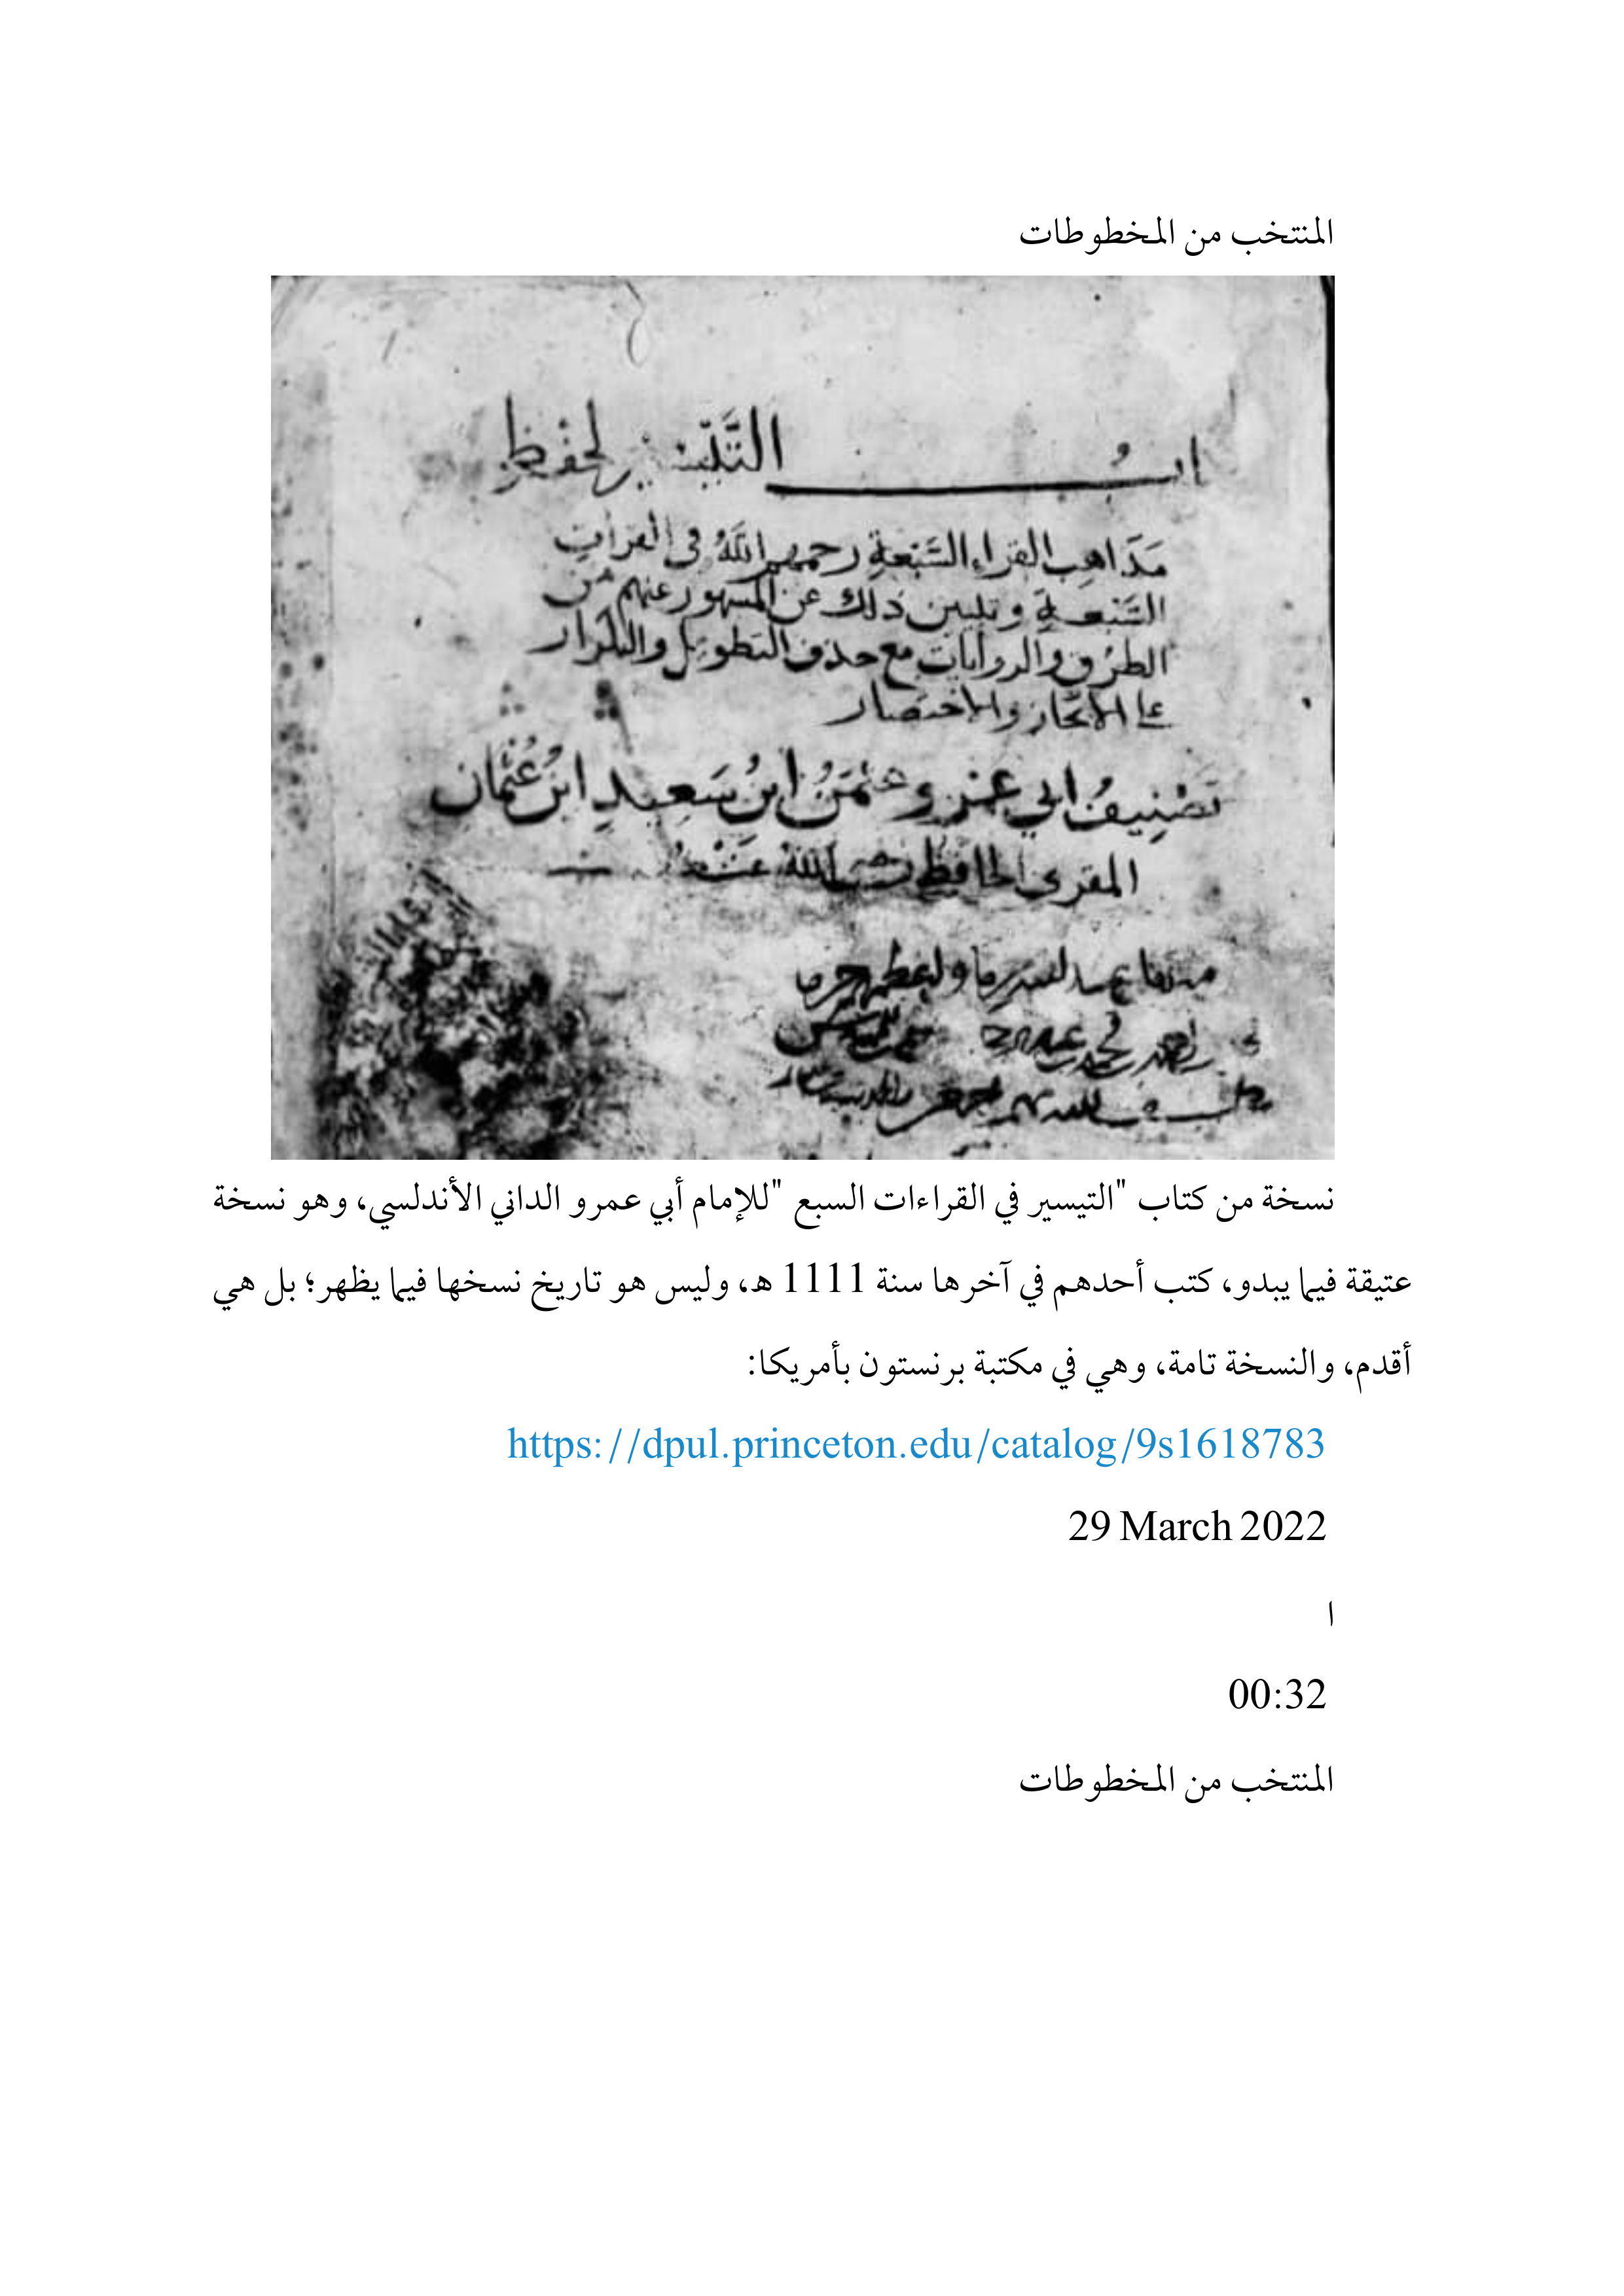 المنتخب من المخطوطات
التيسير لحفظ
مذاهب القراء السبعة رحمهم الله في القرات
السبعة وتبيين ذلك عن المشهور عنهم من
الطرق والروايات مع حذف التطويل والتكرار
على الايجاز والاختصار
تصنيف ابي عمرو عثمن ابن سعيد ابن عثمان
المقرى الحافظ رضي الله عنه
نسخة من كتاب "التيسير في القراءات السبع "للإمام أبي عمرو الداني الأندلسي، وهو نسخة
عتيقة فيما يبدو، كتب أحدهم في آخرها سنة 1111 هـ، وليس هو تاريخ نسخها فيما يظهر؛ بل هي
أقدم، والنسخة تامة، وهي في مكتبة برنستون بأمريكا:
https://dpul.princeton.edu/catalog/9s1618783
29 March 2022
ا
00:32
المنتخب من المخطوطات